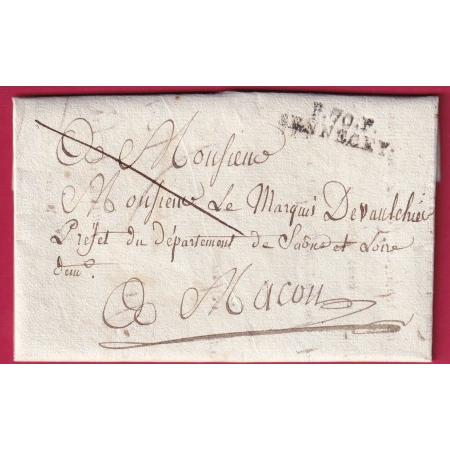 P.70.P.
SENNECEY.
A Monsieur
Monsieur Le Marquis Devaulchier
Préfet du département de Saône et Loire
A Macon